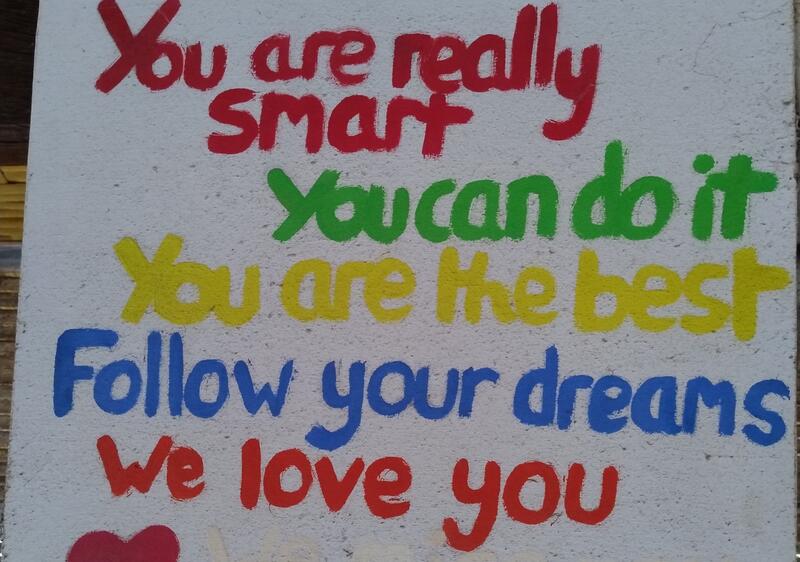 You are really
smart
You can do it
You are the best
Follow your dreams
We love you